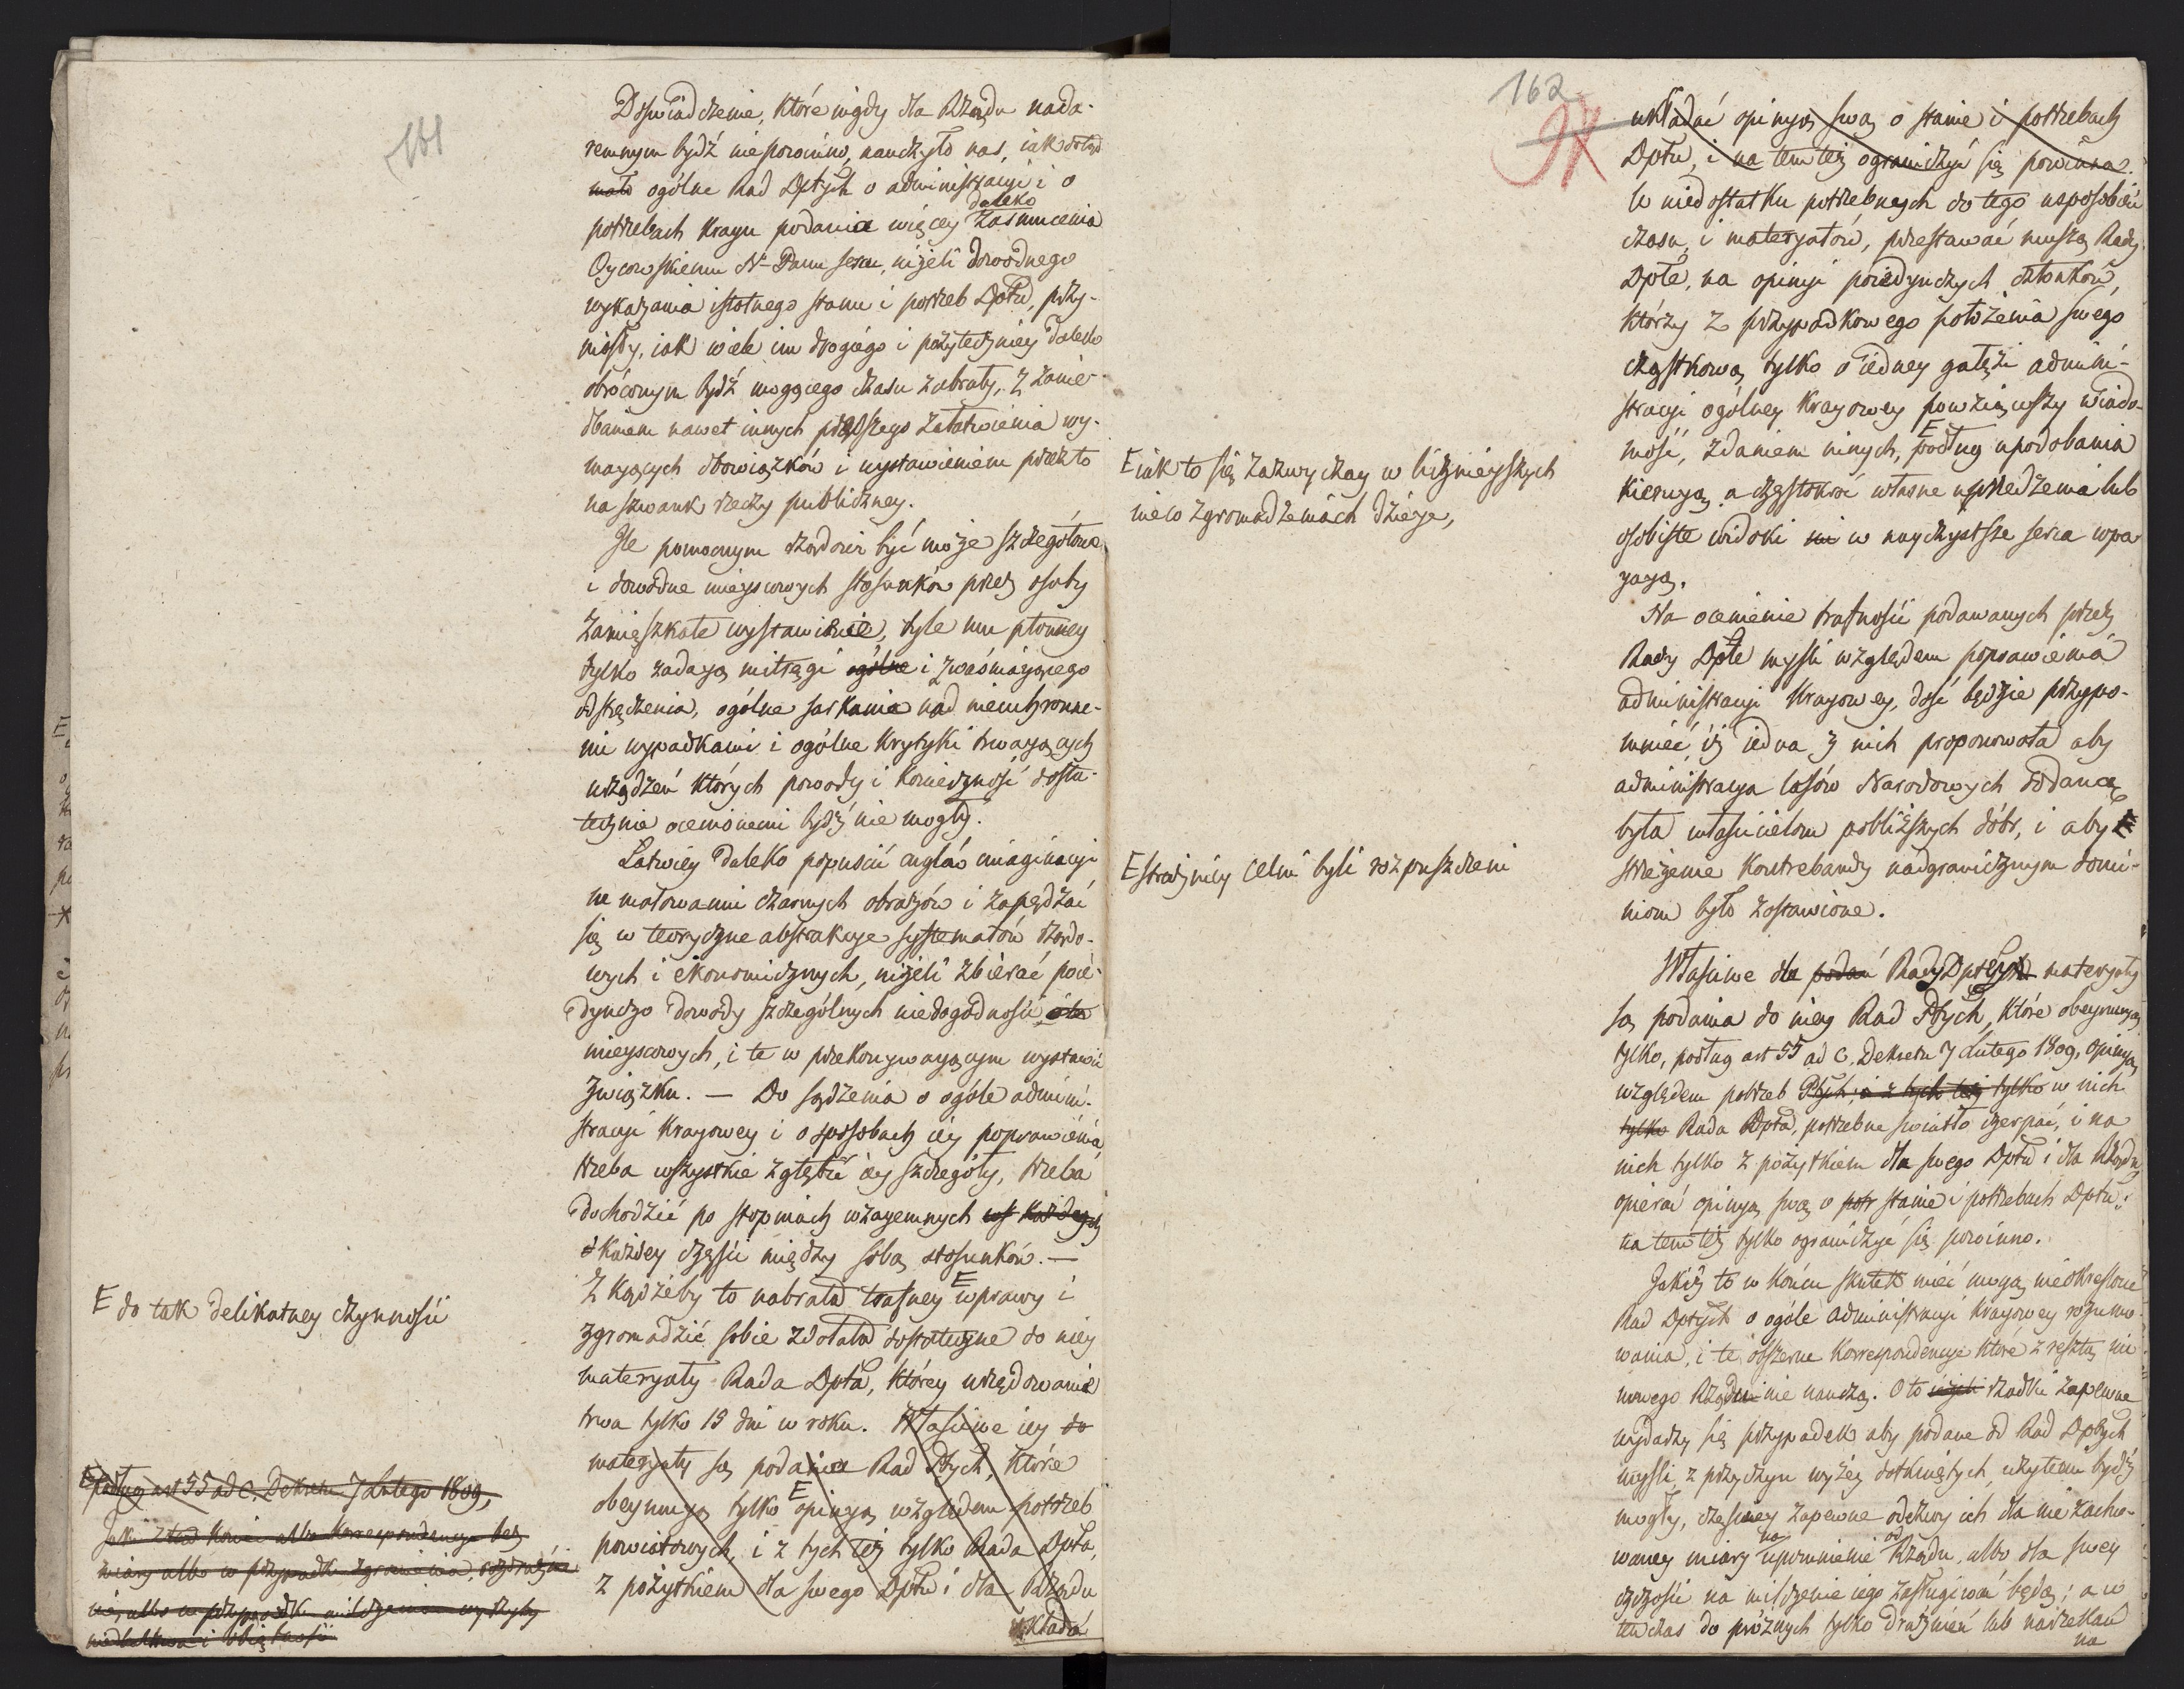 161
Doświadczenie, które nigdy dla Rządu nada-
remnym bydź nie powinno, nauczyło nas, iak dotąd
mało ogólne Rad Dptych o administracyi i o
daleko
potrzebach Kraju podania więcey zasmucenia
Oycowskiemu N. Panu sercu, niżeli dowodnego
wykazania istotnego stanu i potrzeb Dptu, przy-
niosły, iak wiele im drogiego i pożyteczniey daleko
obróconym bydź mogącego czasu zabrały, z zanie-
dbaniem nawet innych prędszego załatwienia wy-
magających obowiązków i wystawieniem przez to
na szwank rzeczy publiczney.
Ile pomocnym rządowi być może szczegółowe
i dowodne mieyscowych stosunków przez osoby
zamięszkałe wystawienie, tyle mu płonney
tylko zadają mitręgi ogólne i zwaśniającego
odstręczenia, ogólne sarkania nad nieuchronne-
mi wypadkami i ogólne krytyki trwających
urządzeń których powody i konieczność dosta-
tecznie ocenionemi bydź nie mogły.
Łatwiey daleko popuścić cuglów imaginacyi
w malowaniu czarnych obrazów i zapędzać
się w teoryczne abstrakcye systematów rządo-
wych i ekonomicznych, niżeli zbierać poie-
dynczo dowody szczególnych niedogodności
mieyscowych, i te w przekonywaiącym wystawić
związku. — Do sądzenia o ogóle admini-
stracyi Kraiowey i o sposobach iey poprawienia
trzeba wszystkie zgłębić iey szczegóły, trzeba
dochodzić po stopniach wzaiemnych
każdey części między sobą stosunków. —
Zkądżeby to nabrała trafney E wprawy i
zgromadzić sobie zdołała dostateczne do niey
materyały Rada Dpta, którey urzędowanie
trwa tylko 15 dni w roku. Właściwe iey do
materyały są podania Rad Ptych, które
obeymują tylko E opinyą względem potrzeb
powiatowych, i z tych też tylko Rada Dpta,
z pożytkiem dla swego Dptu i dla Rządu
układać
E do tak delikatney czynności
E podług art 55 ad C. Dekretu 7 Lutego 1809,
albo korrespondencye bez
miary albo w przypadku
albo w przypadku milczenia
162
układać opinyą swą o stanie i potrzebach
Dptu, i na tem też ograniczyć się powinna.
W niedostatku potrzebnych do tego usposobień
czasu, i materyałów, przestawać muszą Rady
Dpte, na opinyi poiedynczych członków,
którzy z przypadkowego położenia swego
cząstkową tylko o iedney gałęzi admini-
stracyi ogólney Kraiowey powziąwszy wiado-
mość, zdaniem innych, E podług upodobania
kierują, a częstokroć własne uprzedzenia lub
osobiste widoki w nayczystsze serca wpa-
jają.
Na ocenienie trafności podawanych przez
Rady Dpte myśli względem poprawienia
administracyi Kraiowey, dość będzie przypo-
mnieć, iż iedna z nich proponowała aby
administracya lasów Narodowych oddana
była właścicielom pobliższych dóbr, i aby E
strzeżenie kontrebandy nadgranicznym domi-
niom było zostawione.
Właściwe dla podań Rady Dptey materyały
są podania do niey Rad Ptych, które obeymują
tylko, podług art 55 ad C. Dekretu 7 Lutego 1809, opinyą
względem potrzeb Ptych; i z tych też tylko w nich
tylko Rada Dpta, potrzebne światło czerpać, i na
nich tylko z pożytkiem dla swego Dptu i dla Rządu
opierać opinyą swą o potr stanie i potrzebach Dptu:
na tem też tylko ograniczyć się powinno.
Jakiż to w końcu skutek mieć mogą nieokreślone
Rad Dptych o ogóle administracyi Kraiowey rozumo-
wania, i te obszerne korrespondencye które z resztą nic
nowego Rządu nie nauczą. Oto rzadki zapewne
wydarzy się przypadek aby podane od Rad Dptych
myśli, z przyczyn wyżey dotkniętych, użytemi bydź
mogły, częściey zapewne odezwy ich dla nie zacho-
waney miary na upomnienie od Rządu, albo dla swey
czczości na milczenie iego zasługiwać będą; a w
ten czas do próżnych tylko drażnień lub narzekań
na
E iak to się zazwyczay w licznieyszych
nieco zgromadzeniach dzieje,
E strażnicy celni byli rozpuszczeni